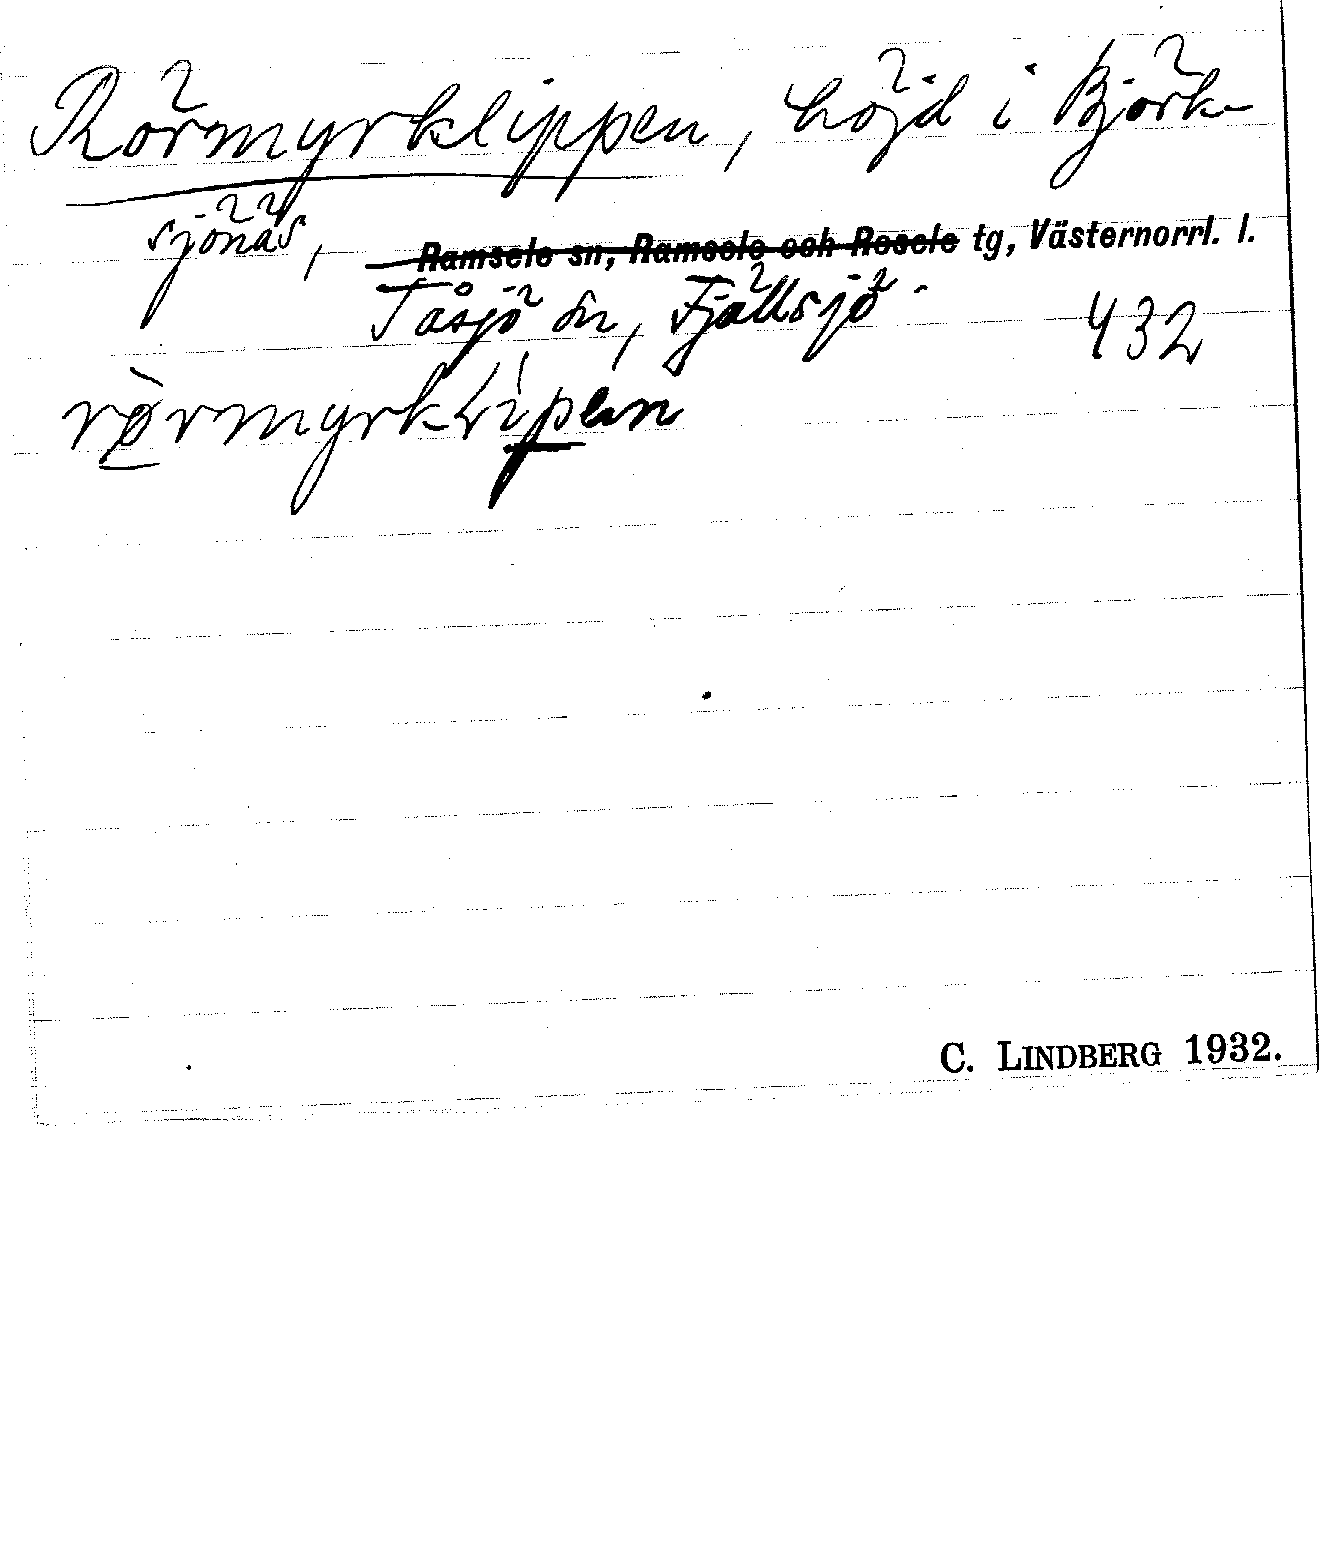 Rörmyrklippen, höjd i Björk-
sjönäs, Ramsele sn, Ramsele och Resele tg, Västernorrl. l.
Tåsjö sn, Fjällsjö -
432
C. LINDBERG 1932.